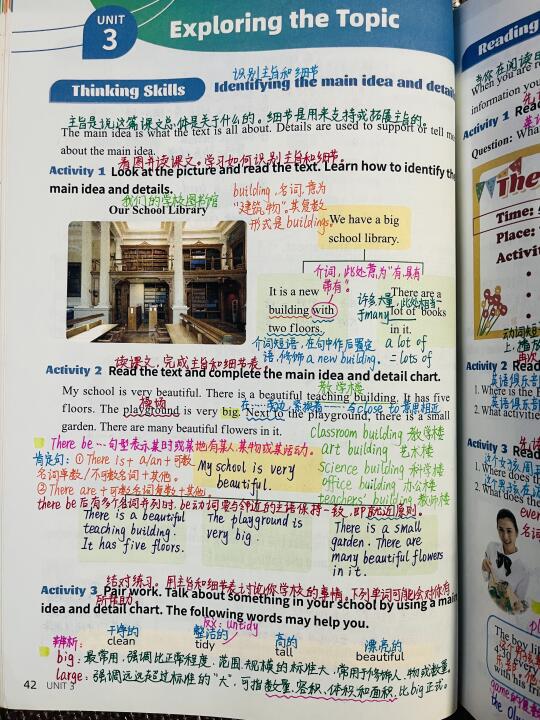 UNIT
3
Exploring the Topic
识别主旨和细节
Thinking Skills
Identifying the main idea and details
主旨是说这篇课文总体是关于什么的。细节是用来支持或拓展主旨的。
The main idea is what the text is all about. Details are used to support or tell more
about the main idea.
看图并读课文。学习如何识别主旨和细节。
Activity 1 Look at the picture and read the text. Learn how to identify the
main idea and details.
我们的学校图书馆
Our School Library
building, 名词, 意为
"建筑物"。其复数
形式是 buildings。
We have a big
school library.
介词, 此处意为"有,具有
带有"。
It is a new
building with
two floors.
许多大量, 此处相当
于many
There are a
lot of books
in it.
介词短语, 在句中作后置定
语, 修饰 a new building.
a lot of
= lots of
读课文, 完成主旨和细节表。
Activity 2 Read the text and complete the main idea and detail chart.
教学楼
My school is very beautiful. There is a beautiful teaching building. It has five
操场
在……旁边, 紧挨着
与close to 意思相近
floors. The playground is very big. Next to the playground, there is a small
garden. There are many beautiful flowers in it.
classroom building 教学楼
art building 艺术楼
science building 科学楼
office building 办公楼
teachers' building 教师楼
There be … 句型表示某时或某地有某人、某物或某活动。
肯定句: ① There is + a/an + 可数
名词单数 / 不可数名词 + 其他。
② There are + 可数名词复数 + 其他。
My school is very
beautiful.
there be 后有多个名词并列时, be动词要与邻近的主语保持一致, 即就近原则。
There is a beautiful
teaching building.
It has five floors.
The playground is
very big.
There is a small
garden. There are
many beautiful flowers
in it.
结对练习。用主旨和细节表讨论你学校的事情。下列单词可能会对你有
所帮助。
Activity 3 Pair work. Talk about something in your school by using a main
idea and detail chart. The following words may help you.
反: untidy
干净的
整洁的
高的
漂亮的
clean
tidy
tall
beautiful
辨析:
big: 最常用, 强调比正常程度、范围、规模的标准大, 常用于修饰人、物或数量。
large: 强调远远超过标准的"大", 可指数量、容积、体积和面积, 比big正式。
42 UNIT 3
Reading
When you are re
information you
Activity 1 Read
Question: Wha
The
Time:
Place:
Activit
Activity 2 Read
1. Where is the E
2. What activitie
Activity 3 Read
1. Where does th
2. What does the
The boy li